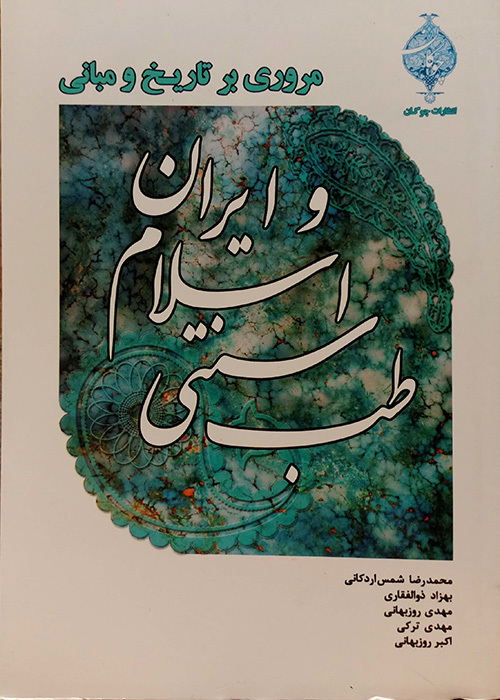 انتشارات چوگان
مروری بر تاریخ و مبانی
طب سنتی
اسلام
و ایران
محمدرضا شمس‌اردکانی
بهزاد ذوالفقاری
مهدی روزبهانی
مهدی ترکی
اکبر روزبهانی